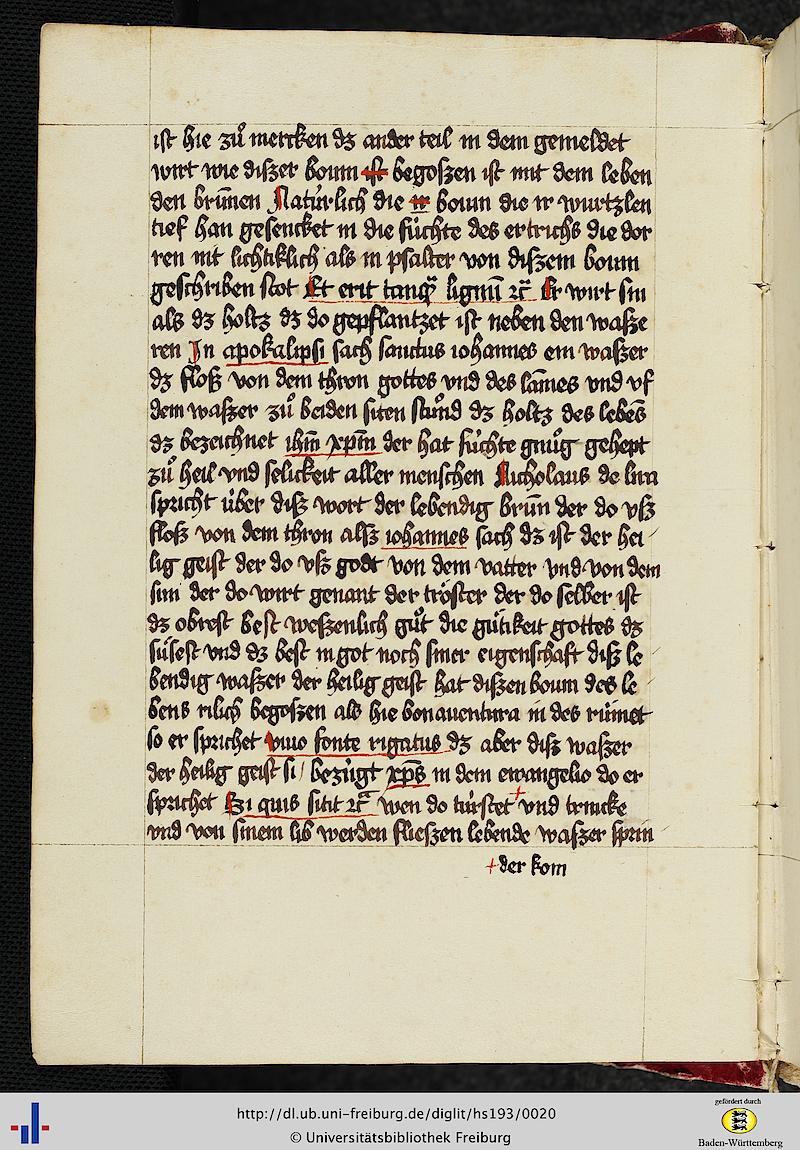 ist hie zuͦ mercken dz ander teil in dem gemeldet
wirt wie diſzer boum ist begoſzen ist mit dem leben
den brūnen Natúrlich die ir boum die ir wurtzlen
tief han geſencket in die fúchte des ertrichs die dor
ren nit lichtiklich als in pſalter von diſzem boum
geſchriben stot Et erit tanqͣ lignū ⁊c̄ Er wirt ſin
als dz holtz dz do gepflantzet ist neben den waſze
ren In apokalipsi sach sanctus iohannes ein waſzer
dz floſz von dem thron gottes vnd des lām̄es vnd vf
dem waſzer zuͦ beiden siten stuͦnd dz holtz des lebēs
dz bezeichnet ihm̄ xpm̄ der hat fúchte gnuͦg gehept
zuͦ heil vnd selickeit aller menschen Nicholaus de lira
spricht úber diſz wort der lebendig brūn der do vſz
floſz von dem thron alſz iohannes sach dz ist der hei
lig geist der do vſz godt von dem vatter vnd von dem
sun der do wirt genant der tröster der do selber ist
dz obrest best weſzenlich guͦt die guͤtikeit gottes dz
suͤsest vnd dz best in got noch siner eigenschaft diſz le
bendig waſzer der heilig geist hat diſzen boum des le
bens rilich begoſzen als hie bonauentura in des ruͤmet
so er sprichet viuo fonte rigatus dz aber diſz waſzer
der heilig geist si / bezúgt xp̄s in dem ewangelio do er
sprichet Si quis sitit ⁊c̄ wen do túrstet + vnd trincke
vnd von sinem lib werden flieſzen lebende waſzer sprin
+ der kom
http://dl.ub.uni-freiburg.de/diglit/hs193/0020
© Universitätsbibliothek Freiburg
gefördert durch
Baden-Württemberg